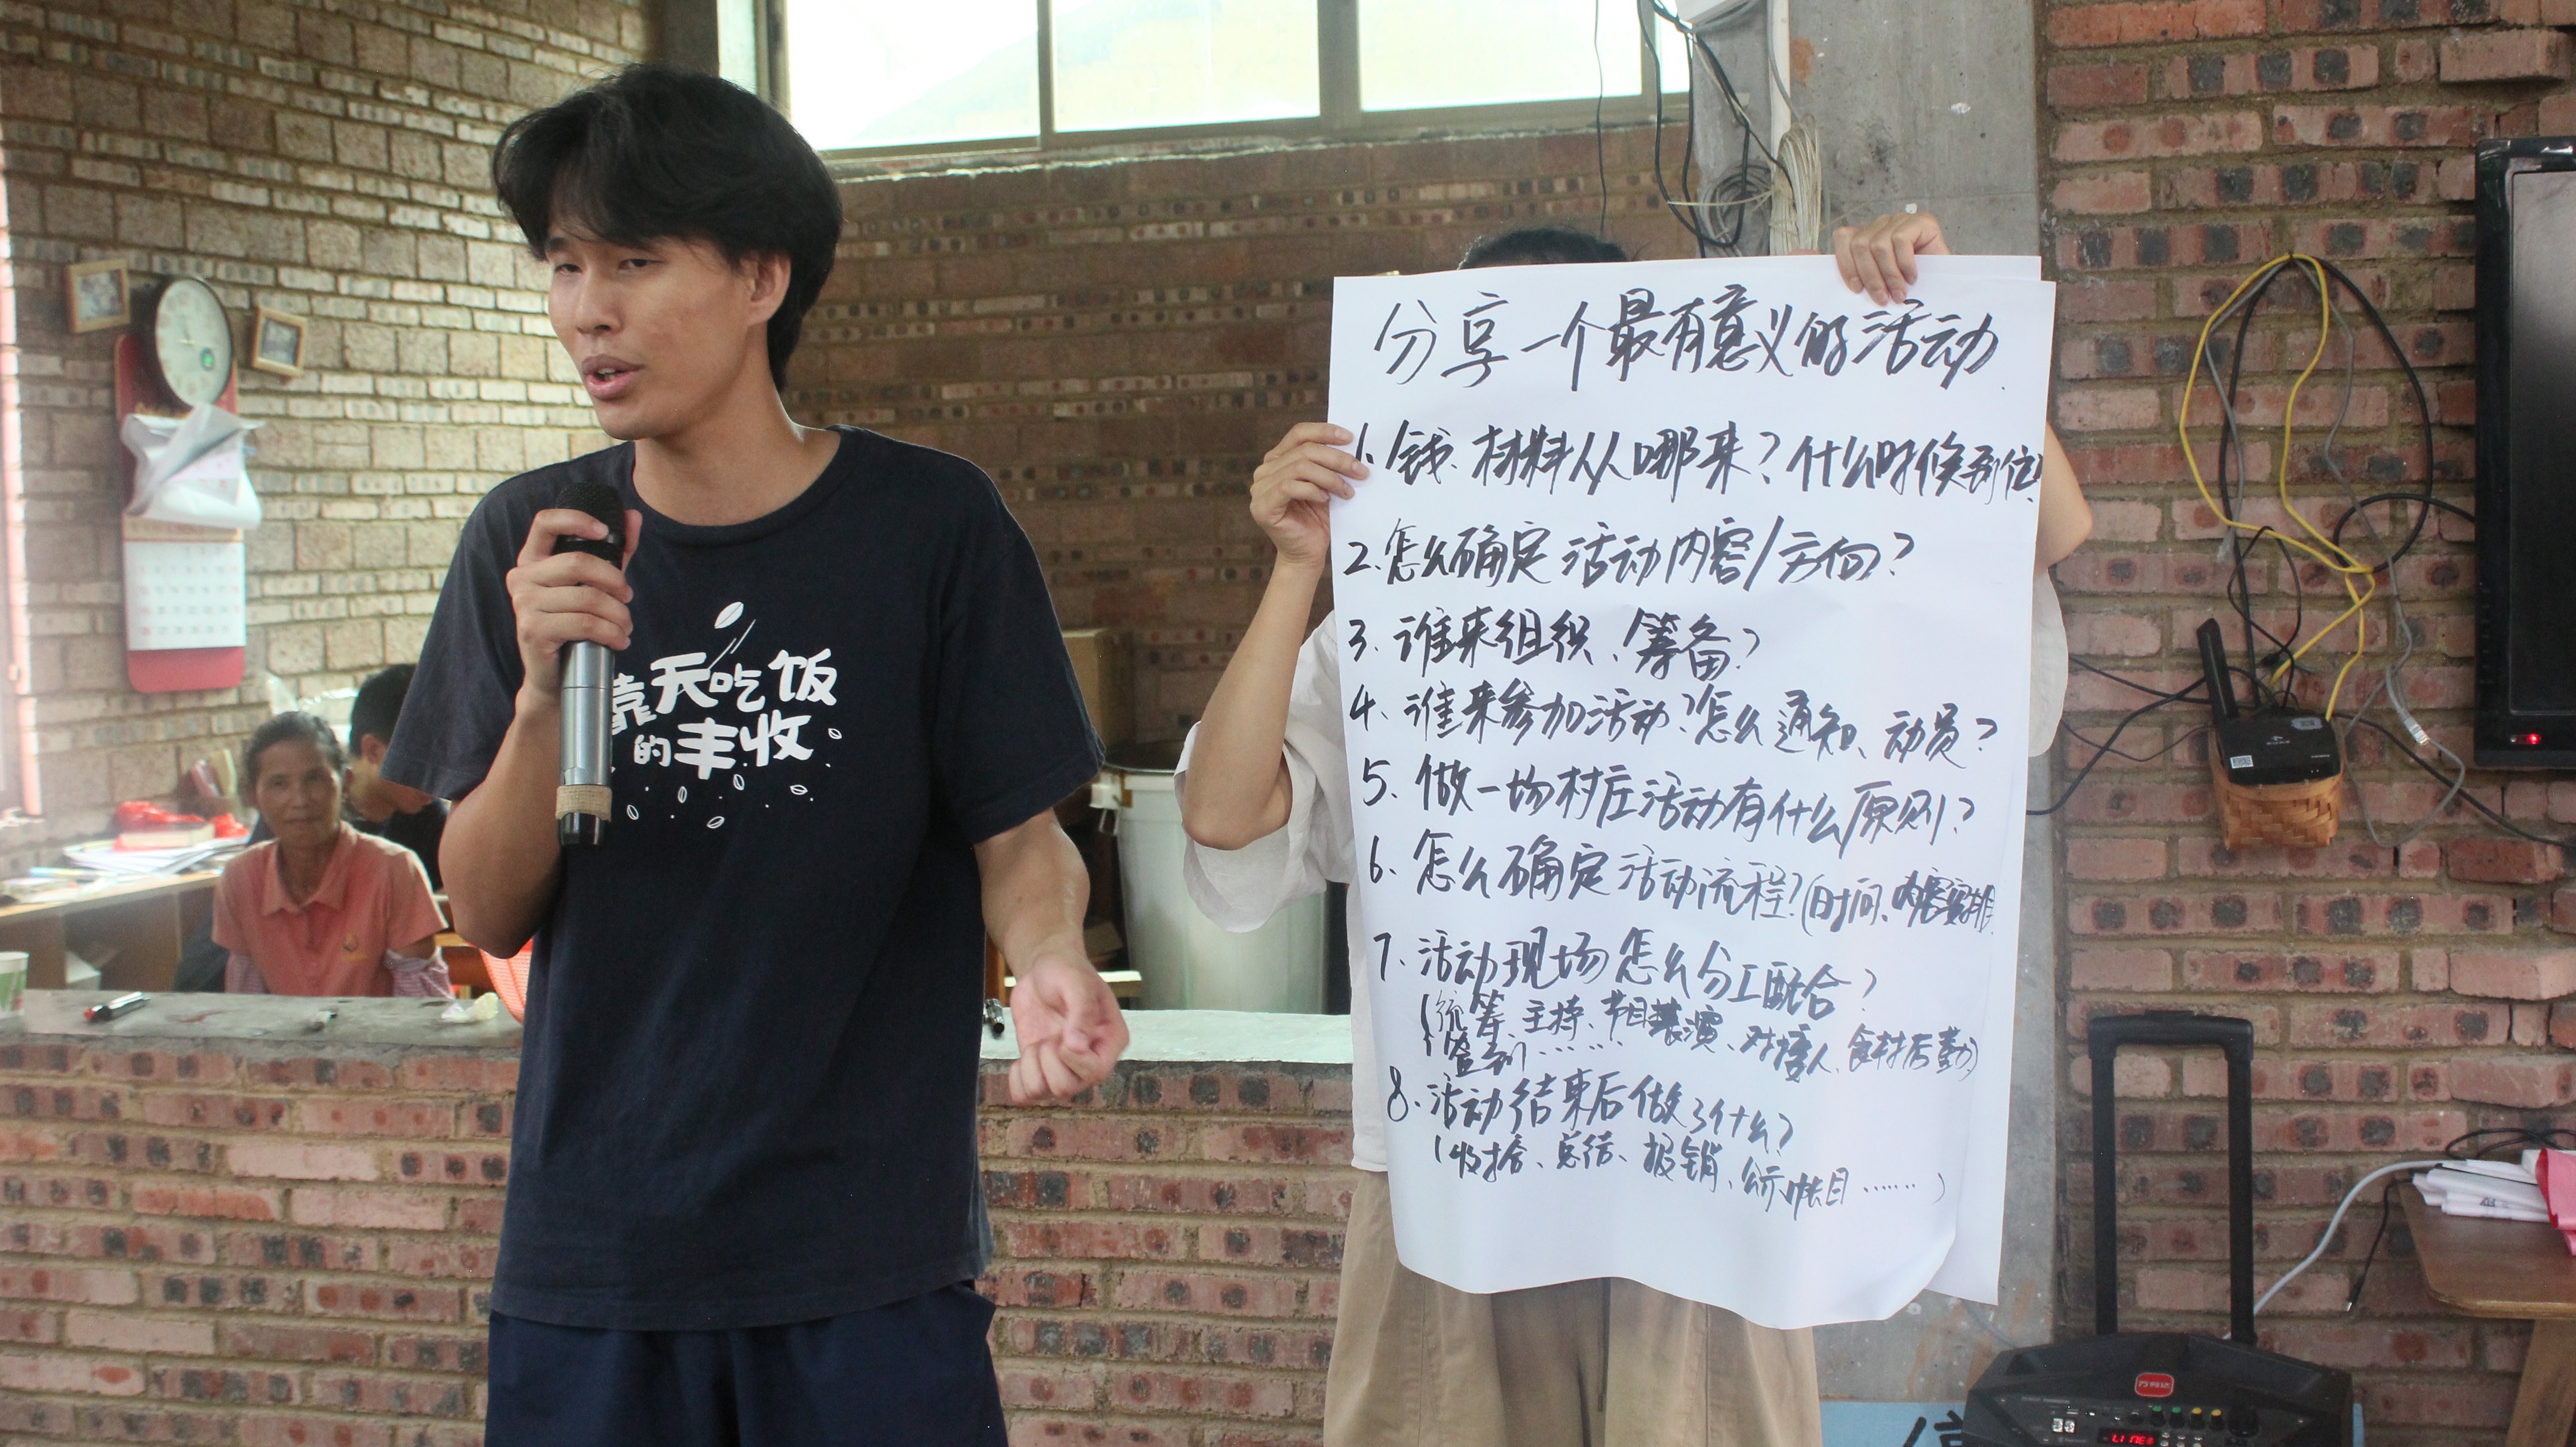 靠天吃饭
的丰收
分享一个最有意义的活动.
1. 钱、材料从哪来？什么时候到位？
2. 怎么确定活动内容/方向？
3. 谁来组织、筹备？
4. 谁来参加活动？怎么通知、动员？
5. 做一场村庄活动有什么原则？
6. 怎么确定活动流程？(时间、内容安排
7. 活动现场怎么分工配合？
(统筹、主持、节目表演、对接人、食材后勤)
签到……
8. 活动结束后做了什么？
(收拾、总结、报销、公示帐目……)